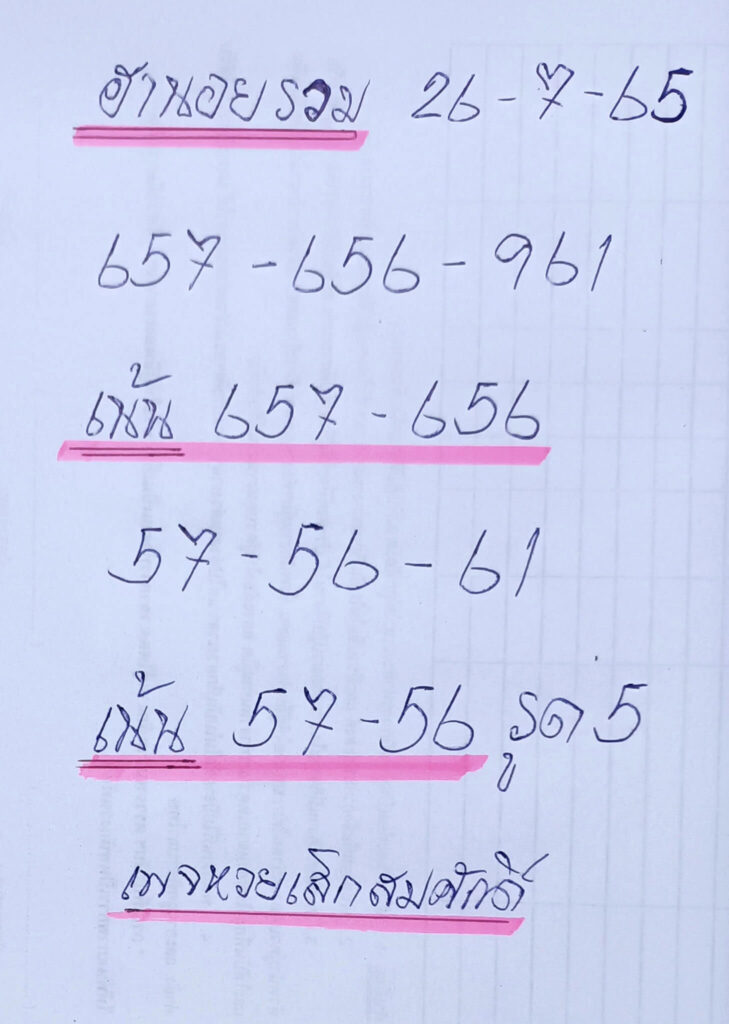 ฮานอยรวม 26-7-65
657-656-961
เน้น 657-656
57-56-61
เน้น 57-56 รูด 5
เพจหวยเสกสมศักดิ์